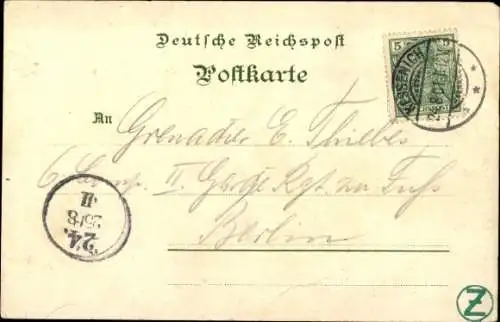 Deutsche Reichspost
Postkarte
5 5
An Grenadier E. Thiebes
6. Comp. II. Garde Rgt. zu Fuß
Berlin
II
25/8
24.
Z